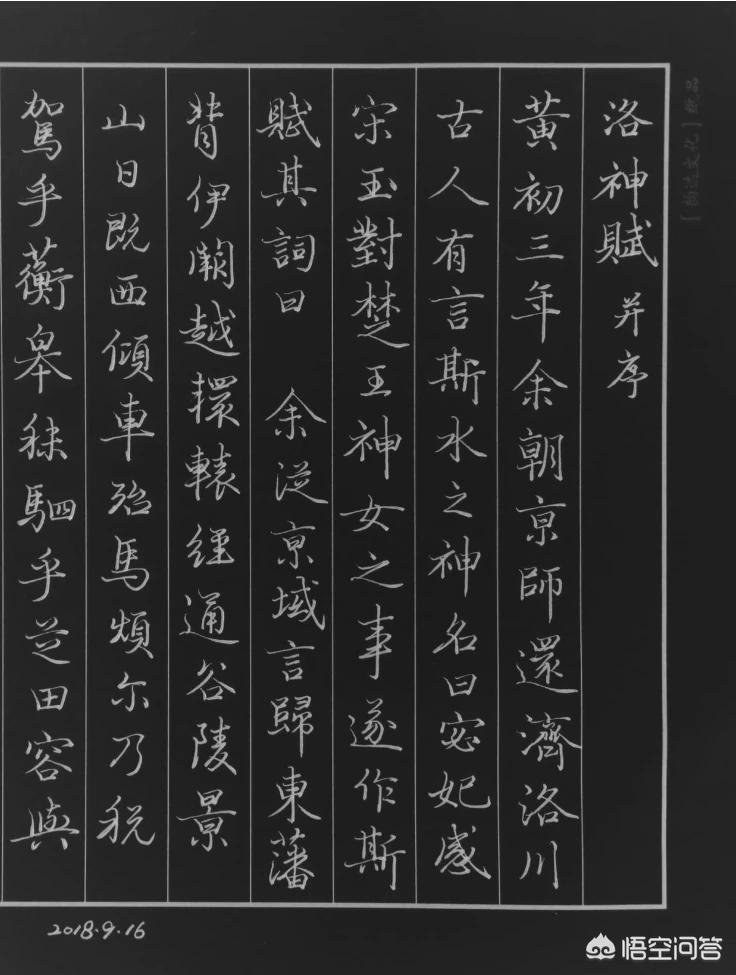 洛神賦 并序
黃初三年余朝京師還濟洛川
古人有言斯水之神名曰宓妃感
宋玉對楚王神女之事遂作斯
賦其詞曰 余從京域言歸東藩
背伊闕越轘轅經通谷陵景
山日既西傾車殆馬煩尔乃税
駕乎蘅皋秣駟乎芝田容與
2018.9.16
悟空问答